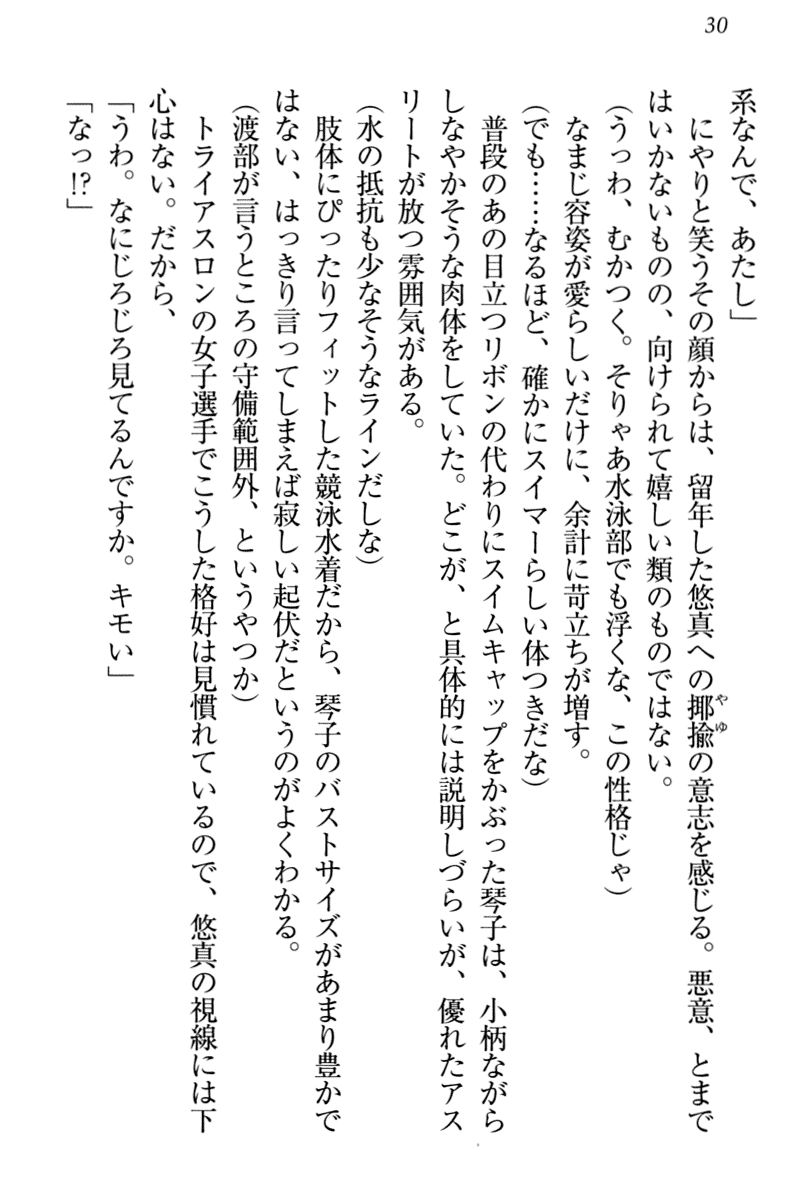 30
系なんで、あたし」
　にやりと笑うその顔からは、留年した悠真への揶揄の意志を感じる。悪意、とまで
やゆ
はいかないものの、向けられて嬉しい類のものではない。
（うっわ、むかつく。そりゃあ水泳部でも浮くな、この性格じゃ）
　なまじ容姿が愛らしいだけに、余計に苛立ちが増す。
（でも……なるほど、確かにスイマーらしい体つきだな）
　普段のあの目立つリボンの代わりにスイムキャップをかぶった琴子は、小柄ながら
しなやかそうな肉体をしていた。どこが、と具体的には説明しづらいが、優れたアス
リートが放つ雰囲気がある。
（水の抵抗も少なそうなラインだしな）
　肢体にぴったりフィットした競泳水着だから、琴子のバストサイズがあまり豊かで
はない、はっきり言ってしまえば寂しい起伏だというのがよくわかる。
（渡部が言うところの守備範囲外、というやつか）
　トライアスロンの女子選手でこうした格好は見慣れているので、悠真の視線には下
心はない。だから、
「うわ。なにじろじろ見てるんですか。キモい」
「なっ!?」